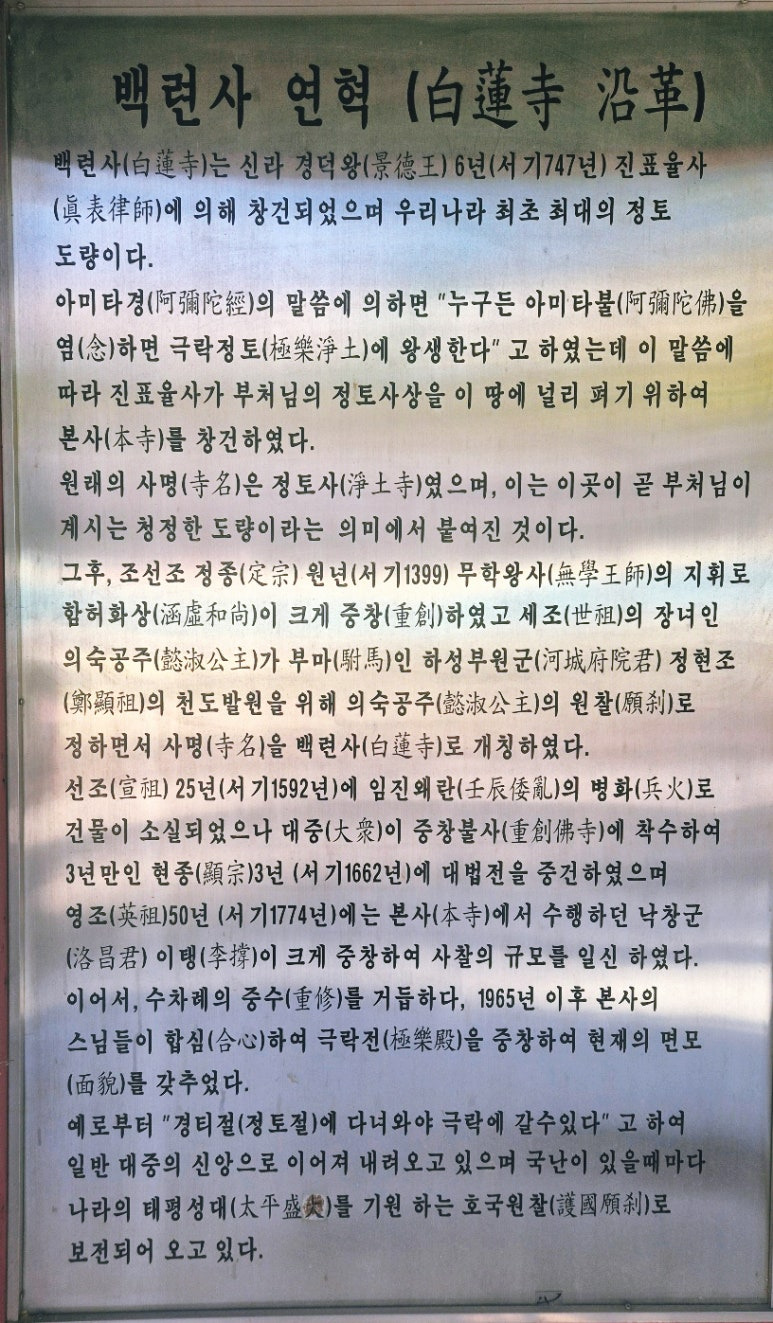 백련사 연혁 (白蓮寺 沿革)
백련사(白蓮寺)는 신라 경덕왕(景德王) 6년(서기747년) 진표율사
(眞表律師)에 의해 창건되었으며 우리나라 최초 최대의 정토
도량이다.
아미타경(阿彌陀經)의 말씀에 의하면 "누구든 아미타불(阿彌陀佛)을
염(念)하면 극락정토(極樂淨土)에 왕생한다" 고 하였는데 이 말씀에
따라 진표율사가 부처님의 정토사상을 이 땅에 널리 펴기 위하여
본사(本寺)를 창건하였다.
원래의 사명(寺名)은 정토사(淨土寺)였으며, 이는 이곳이 곧 부처님이
계시는 청정한 도량이라는 의미에서 붙여진 것이다.
그후, 조선조 정종(定宗) 원년(서기1399) 무학왕사(無學王師)의 지휘로
함허화상(涵虛和尙)이 크게 중창(重創)하였고 세조(世祖)의 장녀인
의숙공주(懿淑公主)가 부마(駙馬)인 하성부원군(河城府院君) 정현조
(鄭顯祖)의 천도발원을 위해 의숙공주(懿淑公主)의 원찰(願刹)로
정하면서 사명(寺名)을 백련사(白蓮寺)로 개칭하였다.
선조(宣祖) 25년(서기1592년)에 임진왜란(壬辰倭亂)의 병화(兵火)로
건물이 소실되었으나 대중(大衆)이 중창불사(重創佛寺)에 착수하여
3년만인 현종(顯宗)3년 (서기1662년)에 대법전을 중건하였으며
영조(英祖)50년 (서기1774년)에는 본사(本寺)에서 수행하던 낙창군
(洛昌君) 이탱(李撑)이 크게 중창하여 사찰의 규모를 일신 하였다.
이어서, 수차례의 중수(重修)를 거듭하다, 1965년 이후 본사의
스님들이 합심(合心)하여 극락전(極樂殿)을 중창하여 현재의 면모
(面貌)를 갖추었다.
예로부터 "경티절(정토절)에 다녀와야 극락에 갈수있다" 고 하여
일반 대중의 신앙으로 이어져 내려오고 있으며 국난이 있을때마다
나라의 태평성대(太平盛)를 기원 하는 호국원찰(護國願刹)로
보전되어 오고 있다.